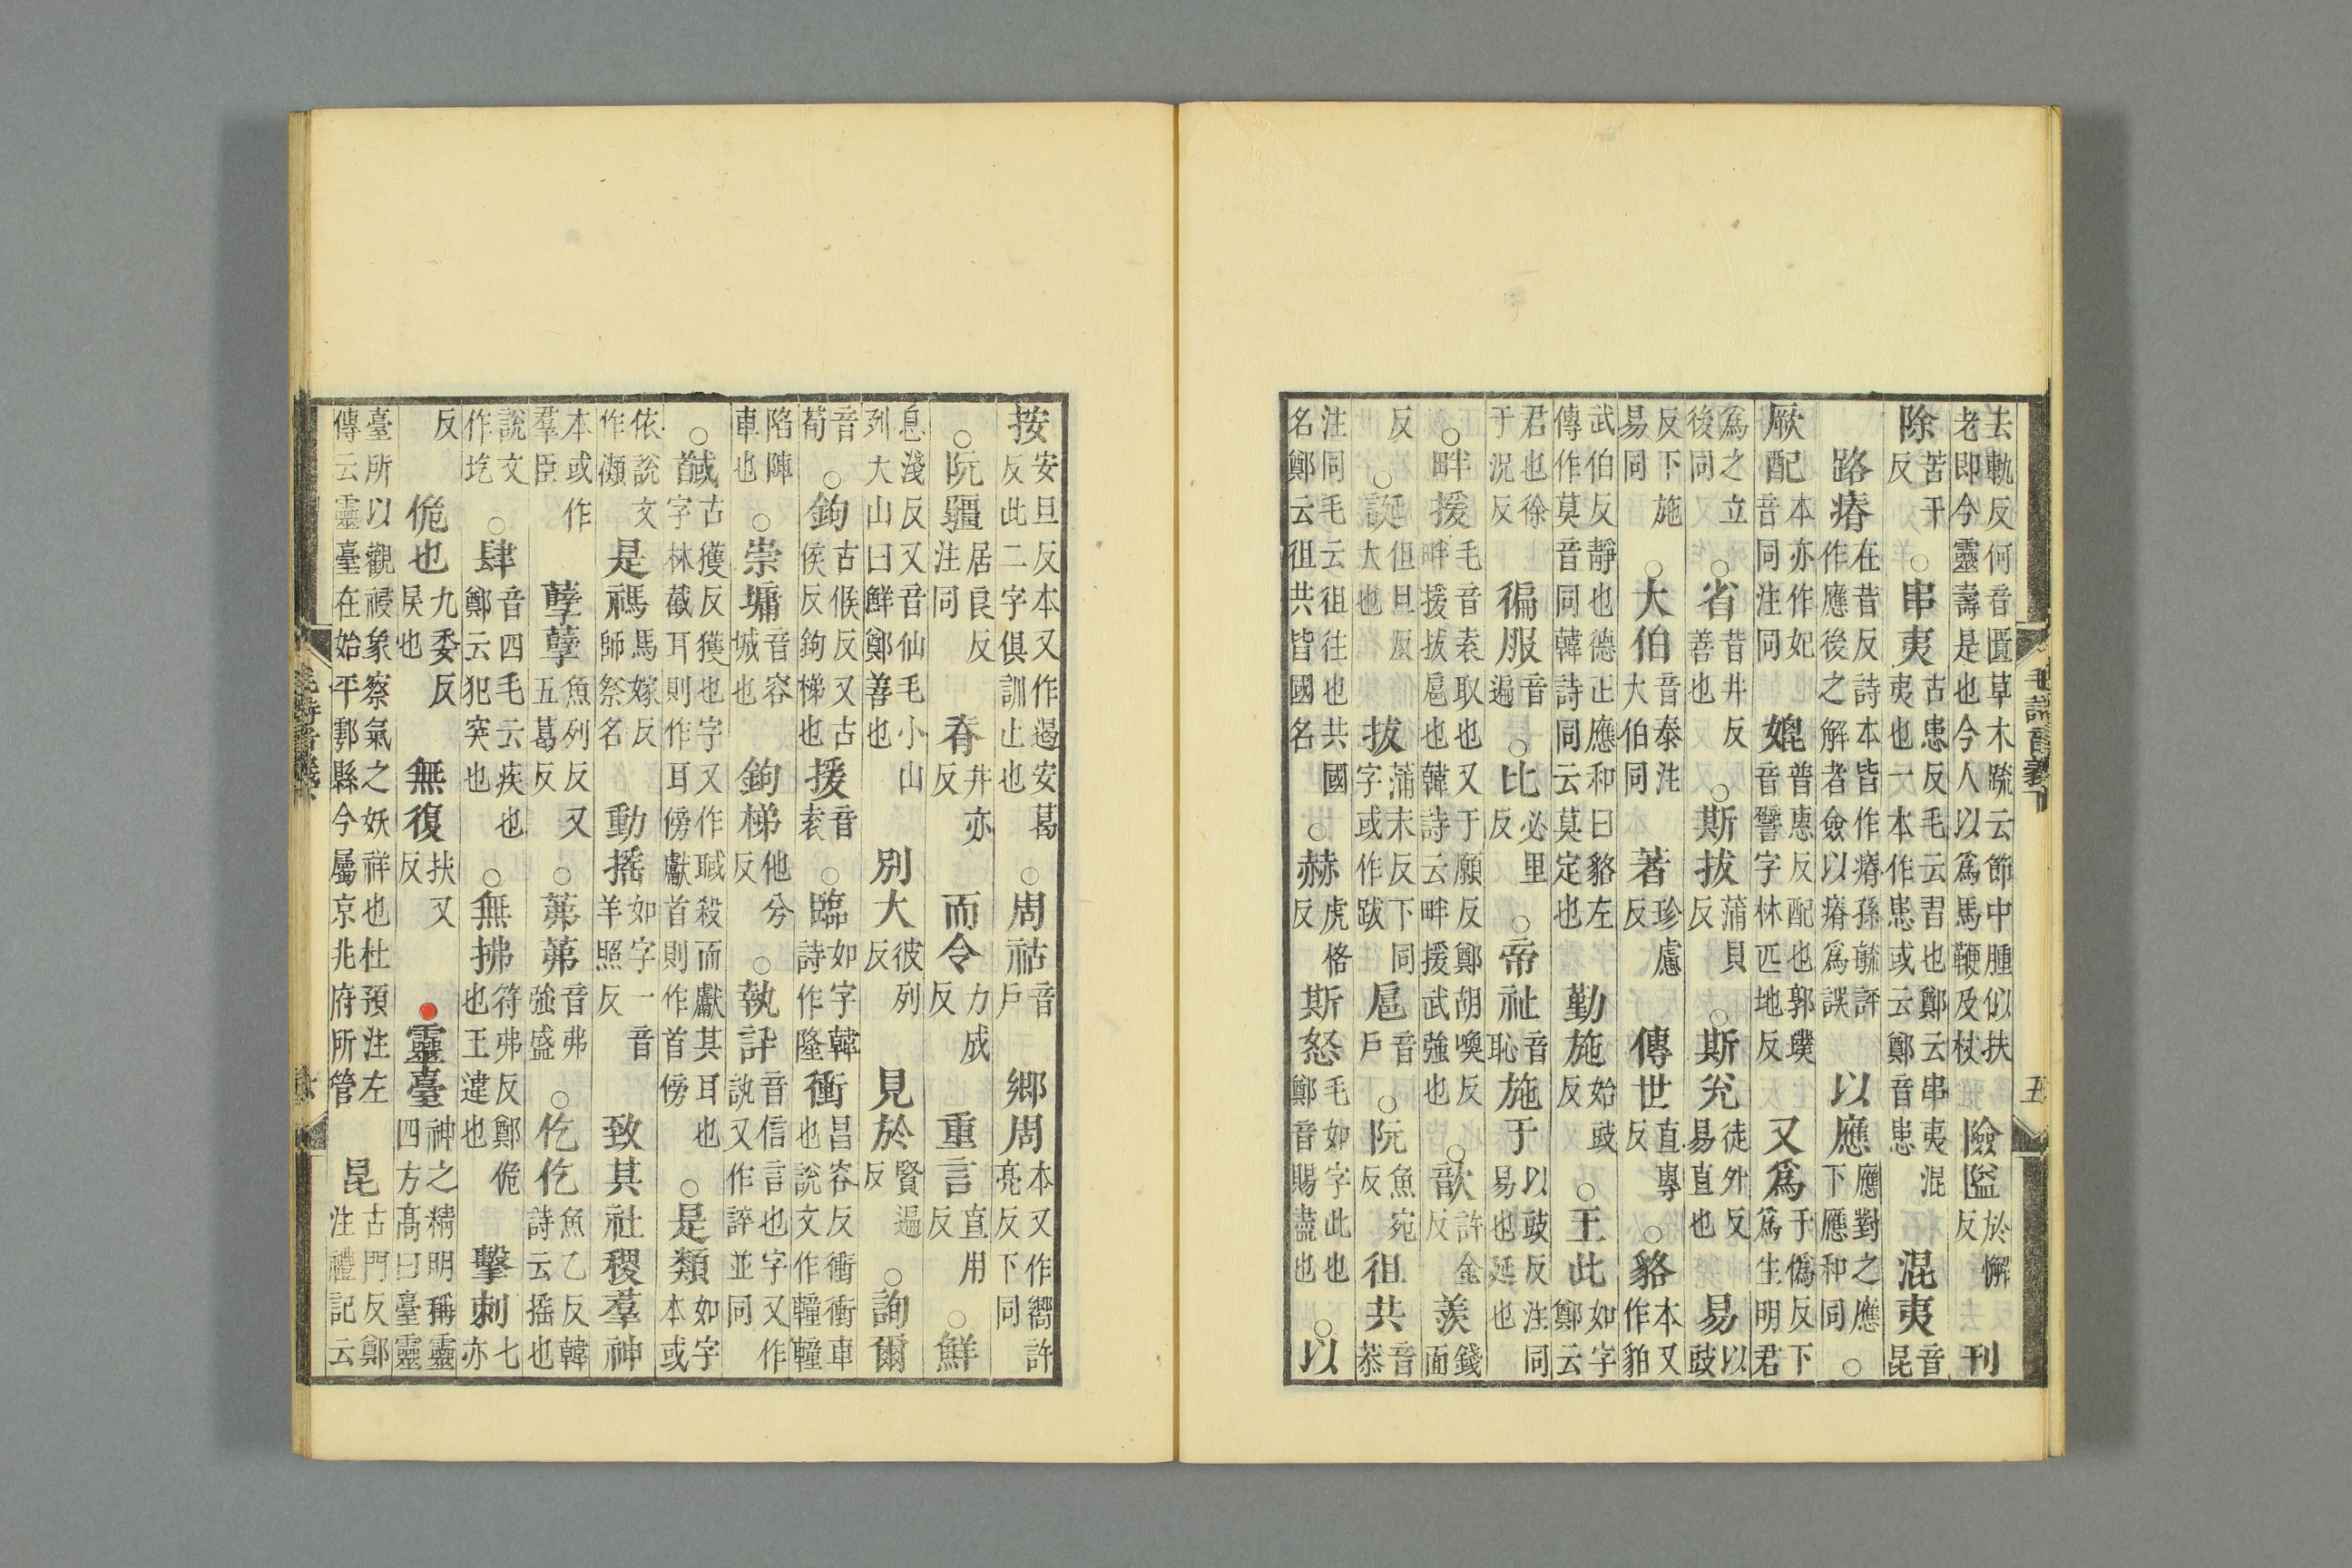 去軌反何音匱草木疏云節中腫似扶老即今靈壽是也今人以爲馬鞭及杖 險隘於懈反 刊
除苦干反 ○串夷古患反毛云習也鄭云串夷混夷也一本作患或云鄭音患 混夷音昆
路瘠在昔反詩本皆作瘠孫毓評作應後之解者僉以瘠爲誤 以應應對之應下應和同 ○
厥配本亦作妃音同注同 媲普惠反配也郭璞音譬字林匹地反 又爲于僞反下爲生明君
爲之立後同 ○省昔井反善也 ○斯拔蒲貝反 ○斯兊徒外反易直也 易以豉
反下施易同 ○大伯音泰注大伯同 著珍慮反 傳世直專反 ○貉本又作貊
武伯反靜也德正應和曰貉左傳作莫音同韓詩同云莫定也 勤施始豉反 ○王此如字鄭云
君也徐于况反 徧服音遍 ○比必里反 ○帝祉音恥 施于以豉反注同易也延也
○畔援毛音袁取也又于願反鄭胡喚反畔援拔扈也韓詩云畔援武強也 ○歆許金反 羨錢面
反 ○誕但旦反大也 拔蒲末反下同字或作跋 扈音戶 ○阮魚宛反 徂共音恭
注同毛云徂往也共國名鄭云徂共皆國名 ○赫虎格反 斯怒毛如字此也鄭音賜盡也 ○以
毛詩音義下
五
按安旦反本又作遏安葛反此二字俱訓止也 ○周祜音戶 鄉周本又作嚮許亮反下同
○阮疆居良反注同 脊井亦反 而令力成反 重言直用反 ○鮮
息淺反又音仙毛小山列大山曰鮮鄭善也 別大彼列反 見於賢遍反 ○詢爾
音荀 ○鉤古候反又古侯反鉤梯也 援音袁 ○臨如字韓詩作隆 衝昌容反衝衝車也說文作䡴䡴
陷陣車也 ○崇墉音容城也 鉤梯他兮反 ○執訊音信言也字又作訙又作誶並同
○馘古獲反獲也字又作聝殺而獻其耳也首字林截耳則作耳傍獻首則作首傍 ○是類如字本或
依說文作禷 是禡馬嫁反師祭名 動搖如字一音羊照反 致其社稷羣神
本或作羣臣 孽孽魚列反又五葛反 ○茀茀音弗強盛 ○仡仡魚乙反韓詩云搖也
說文作圪 ○肆音四毛云疾也鄭云犯突也 ○無拂符弗反鄭也王違也 佹 擊刺七亦
反 佹也九委反戾也 無復扶又反 靈臺神之精明稱靈四方高曰臺靈
臺所以觀祲象察氣之妖祥也杜預注左傳云靈臺在始平鄠縣今屬京兆府所管 昆古門反鄭注禮記云
毛詩音義下
六